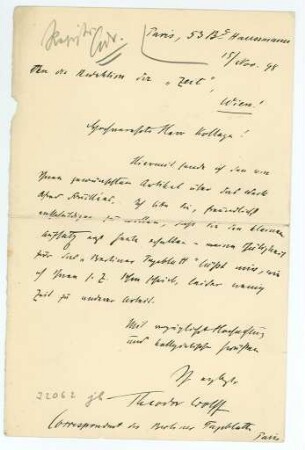 Paris, 53 Bd Haussmann
15/Nov. 98
An die Redaktion der „Zeit",
Wien!
Hochverehrter Herr Kollege!
Hiermit sende ich den von
Ihnen gewünschten Artikel über das Werk
Ich bitte Sie, freundlichst
entschuldigen zu wollen, daß Sie den kleinen
Aufsatz erst heute erhalten – meine Thätigkeit
für das „Berliner Tageblatt" läßt mir, wie
ich Ihnen s. Z. schon schrieb, leider wenig
Zeit zu anderer Arbeit.
Mit vorzüglicher Hochachtung
und kollegialischen Grüßen
Ihr ergebener
22062
Theodor Wolff
Correspondent des Berliner Tageblatts
Paris